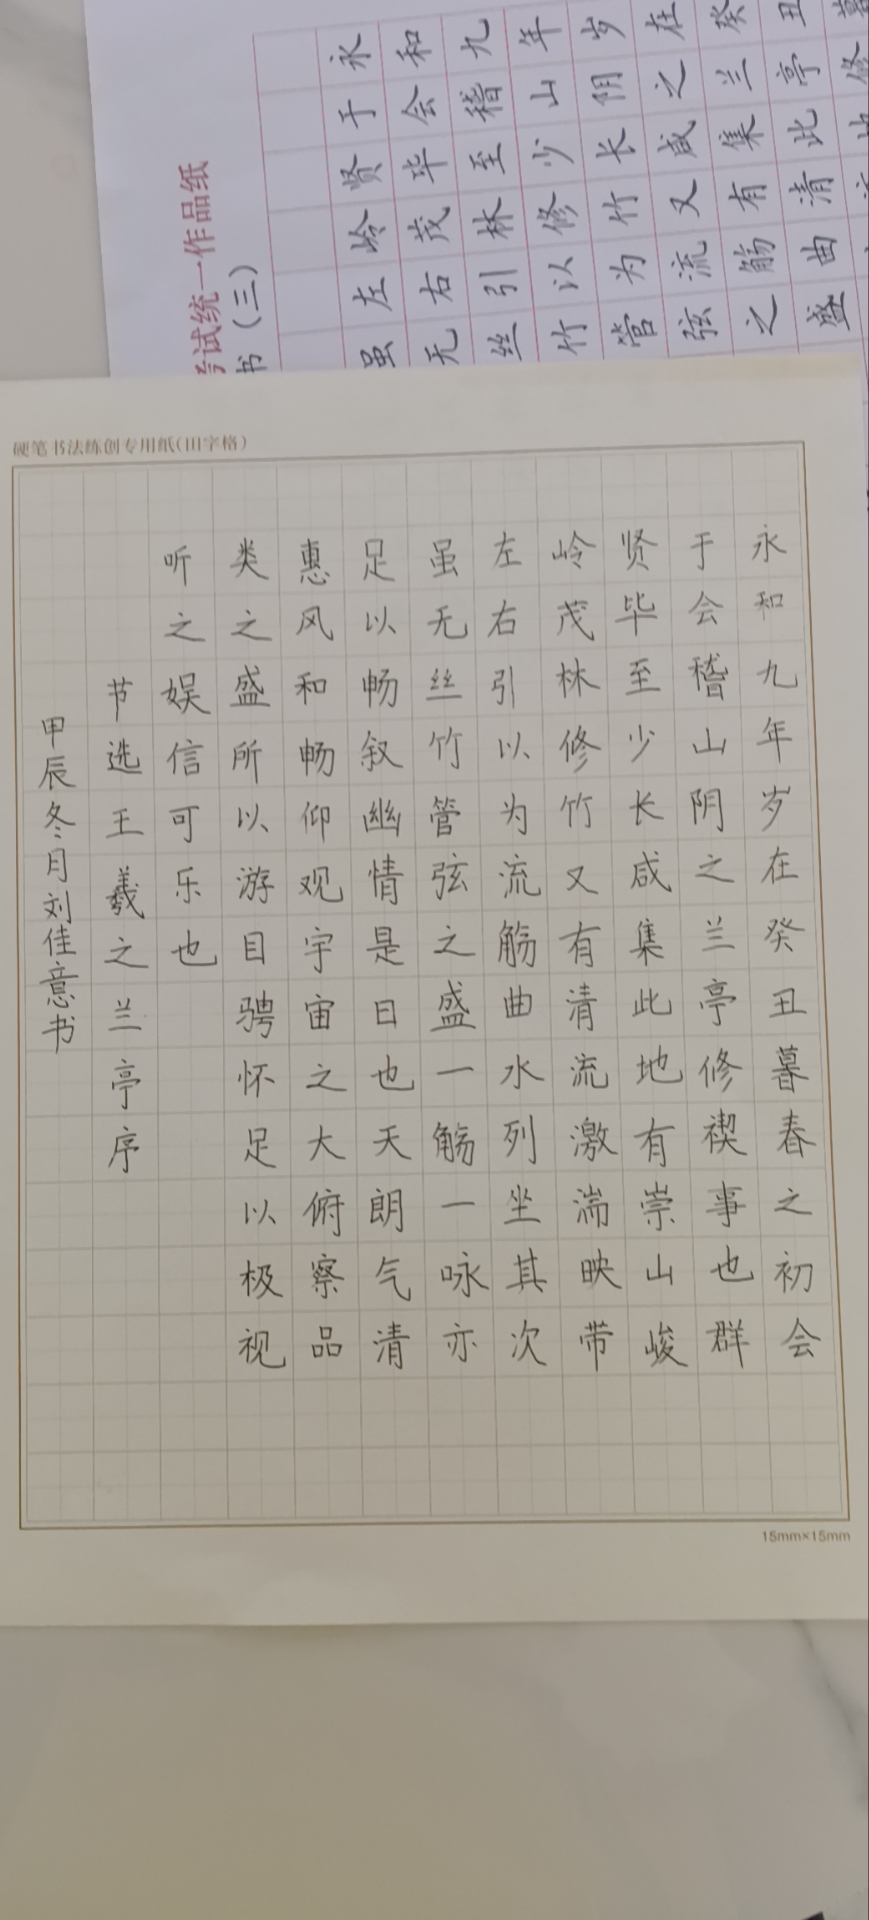 试统一作品纸
书(三)
永和九年岁在癸丑暮
于会稽山阴之兰亭修
贤毕至少长咸集此
岭茂林修竹又有清
左右引以为流觞曲
虽无丝竹管弦之盛
硬笔书法练创专用纸(田字格)
永和九年岁在癸丑暮春之初会
于会稽山阴之兰亭修禊事也群
贤毕至少长咸集此地有崇山峻
岭茂林修竹又有清流激湍映带
左右引以为流觞曲水列坐其次
虽无丝竹管弦之盛一觞一咏亦
足以畅叙幽情是日也天朗气清
惠风和畅仰观宇宙之大俯察品
类之盛所以游目骋怀足以极视
听之娱信可乐也
节选王羲之兰亭序
甲辰冬月刘佳意书
15mm×15mm